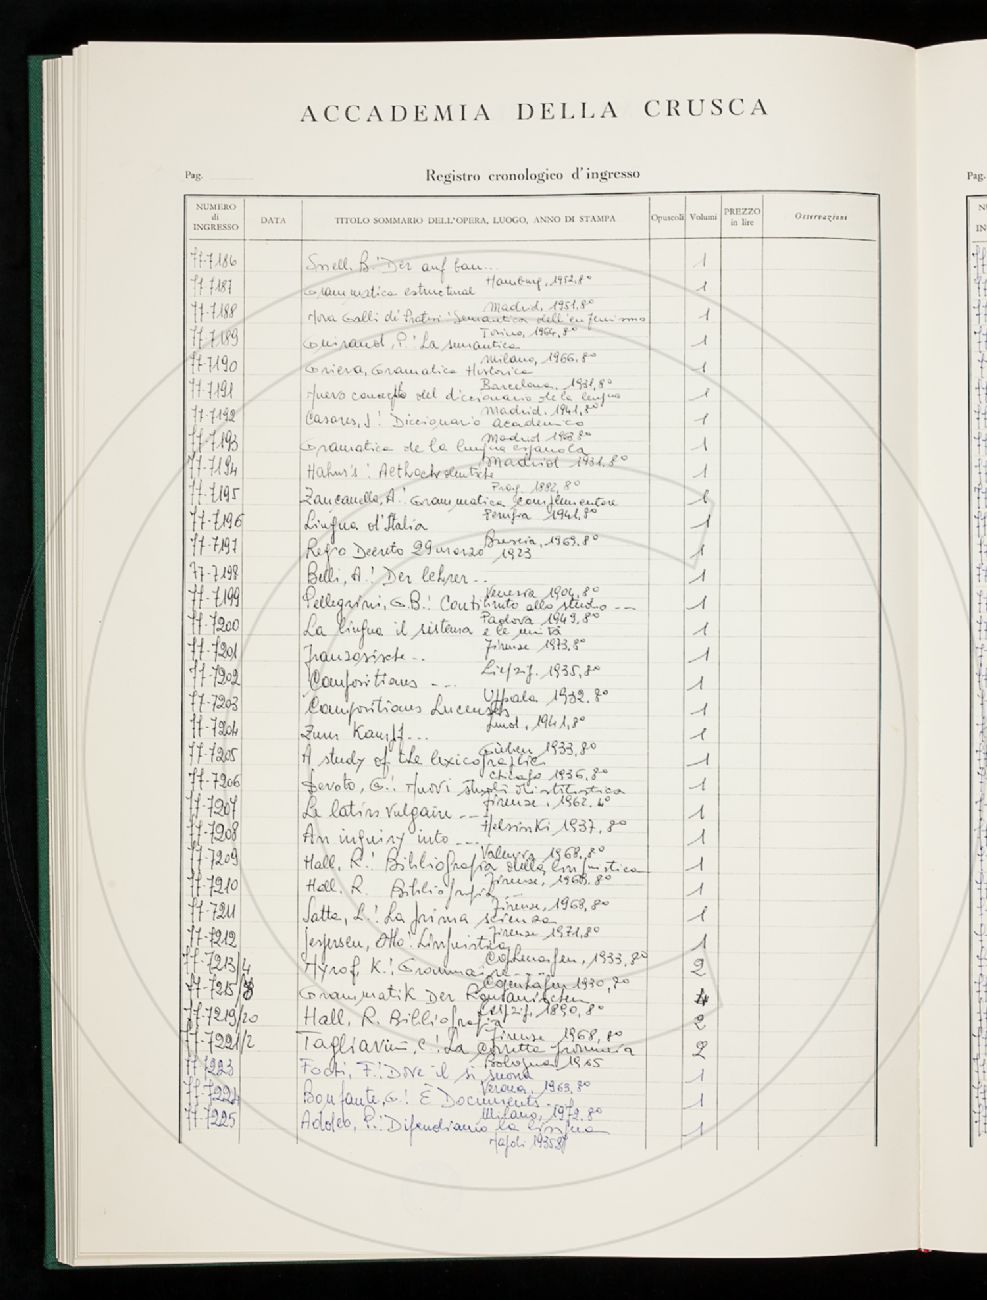 ACCADEMIA DELLA CRUSCA
Pag.
Registro cronologico d'ingresso
Pag.
NUMERO di INGRESSO DATA TITOLO SOMMARIO DELL'OPERA, LUOGO, ANNO DI STAMPA Opuscoli Volumi PREZZO in lire Osservazioni
77-7186 Snell, B.: Der auf bau... 1
Hamburg, 1952, 8°
77-7187 Grammatica estructural 1
Madrid, 1951, 8°
77-7188 Nora Galli de' Pratesi: Semantica dell'eufemismo 1
Torino, 1964, 8°
77-7189 Guiraud, P.: La semantica 1
Milano, 1966, 8°
77-7190 Griera, Gramatica Historica 1
Barcelona, 1931, 8°
77-7191 Nuevo concepto del diccionario de la lengua 1
Madrid, 1941, 8°
77-7192 Casares, J.: Diccionario academico 1
Madrid 1963 8°
77-7193 Gramatica de la lengua española 1
Madrid 1931, 8°
77-7194 Hahn's: 1
Prag, 1882, 8°
77-7195 Zancanella, A.: Grammatica complementare 1
Perugia 1941, 8°
77-7196 Lingua d'Italia 1
Brescia, 1969, 8°
77-7197 Regio Decreto 29 marzo 1923 1
77-7198 Belli, A.: Der lehrer... 1
Venezia 1904, 8°
77-7199 Pellegrini, G.B.: Contributo allo studio --- 1
Padova 1949, 8°
77-7200 La lingua il sistema e le unità 1
Firenze 1973, 8°
77-7201 Französische... 1
Leipzig, 1935, 8°
77-7202 Compositiones --- 1
Uppsala 1932, 8°
77-7203 Compositiones Lucenses 1
Lund, 1941, 8°
77-7204 Zum Kampf... 1
1933, 8°
77-7205 A study of the lexicografhie 1
Chicago 1936, 8°
77-7206 Devoto, G.: Nuovi studi di stilistica 1
Firenze, 1962, 4°
77-7207 Le latin vulgaire --- 1
Helsinki 1937, 8°
77-7208 An inquiry into --- 1
1968, 8°
77-7209 Hall, R.: Bibliografia della linguistica 1
Firenze, 1968, 8°
77-7210 Hall, R. Bibliografia --- 1
Firenze, 1968, 8°
77-7211 Satta, L.: La prima scienza 1
Firenze 1971, 8°
77-7212 Jespersen, Otto: Linguistica 1
Cophenagen, 1933, 8°
77-7213/4 Nyrop, K.: Grammaire --- 2
Copenhagen 1930, 8°
77-7215/8 Grammatik Der Romanischen 4
Leipzig, 1890, 8°
77-7219/20 Hall, R. Bibliografia 2
Firenze 1968, 8°
77-7221/2 Tagliavini, C.: La corretta pronuncia 2
Bologna 1965
77-7223 Fochi, F.: Dove il sì suona 1
Verona, 1969, 8°
77-7224 Bonfante, G.: È Documents... 1
Milano, 1972, 8°
77-7225 Adolfo, P.: Difendiamo la lingua 1
Napoli 1935 8°